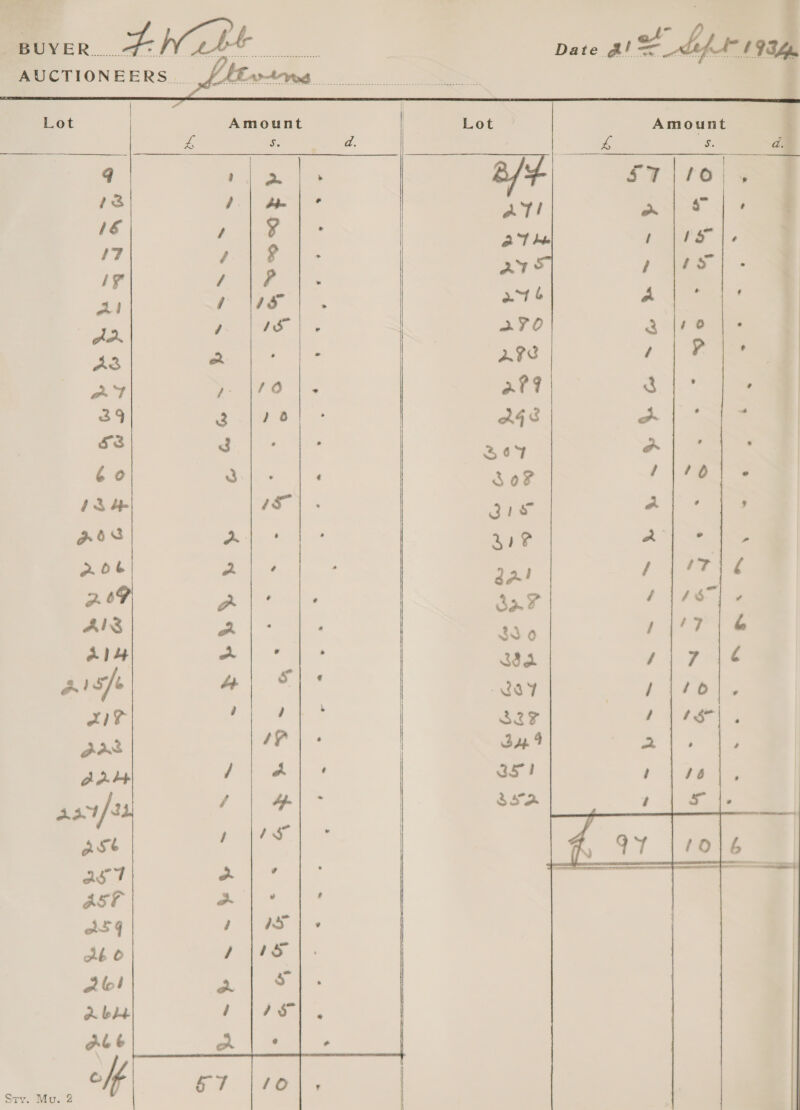 BUYER F. Webb
Date 21st Sept 1934
AUCTIONEERS Stevens
Lot Amount
£ s. d.
9 1 2 .
13 1 4 .
16 1 8 .
17 1 8 .
18 1 8 .
21 1 15 .
22 1 15 .
23 2 . .
27 1 10 .
39 3 10 .
53 3 . .
60 3 . .
134 15 .
203 2 . .
206 2 . .
209 2 . .
213 2 . .
214 2 . .
215/6 4 5 .
218 1 1 .
223 18 .
224 1 2 .
227/32 1 4 .
256 1 15 .
257 2 . .
258 2 . .
259 1 15 .
260 1 15 .
261 2 5 .
264 1 15 .
266 2 . .
c/f 57 10 .
Lot Amount
£ s. d.
B/F 57 10 .
271 2 5 .
274 1 15 .
275 1 15 .
276 2 . .
280 3 10 .
283 1 8 .
289 3 . .
293 2 . .
307 2 . .
308 1 10 .
315 2 . .
318 2 . .
321 1 17 6
328 1 15 .
330 1 17 6
332 1 7 6
337 1 10 .
338 1 15 .
349 2 . .
351 1 10 .
352 1 5 .
£ 97 10 6
Srv. Mu. 2